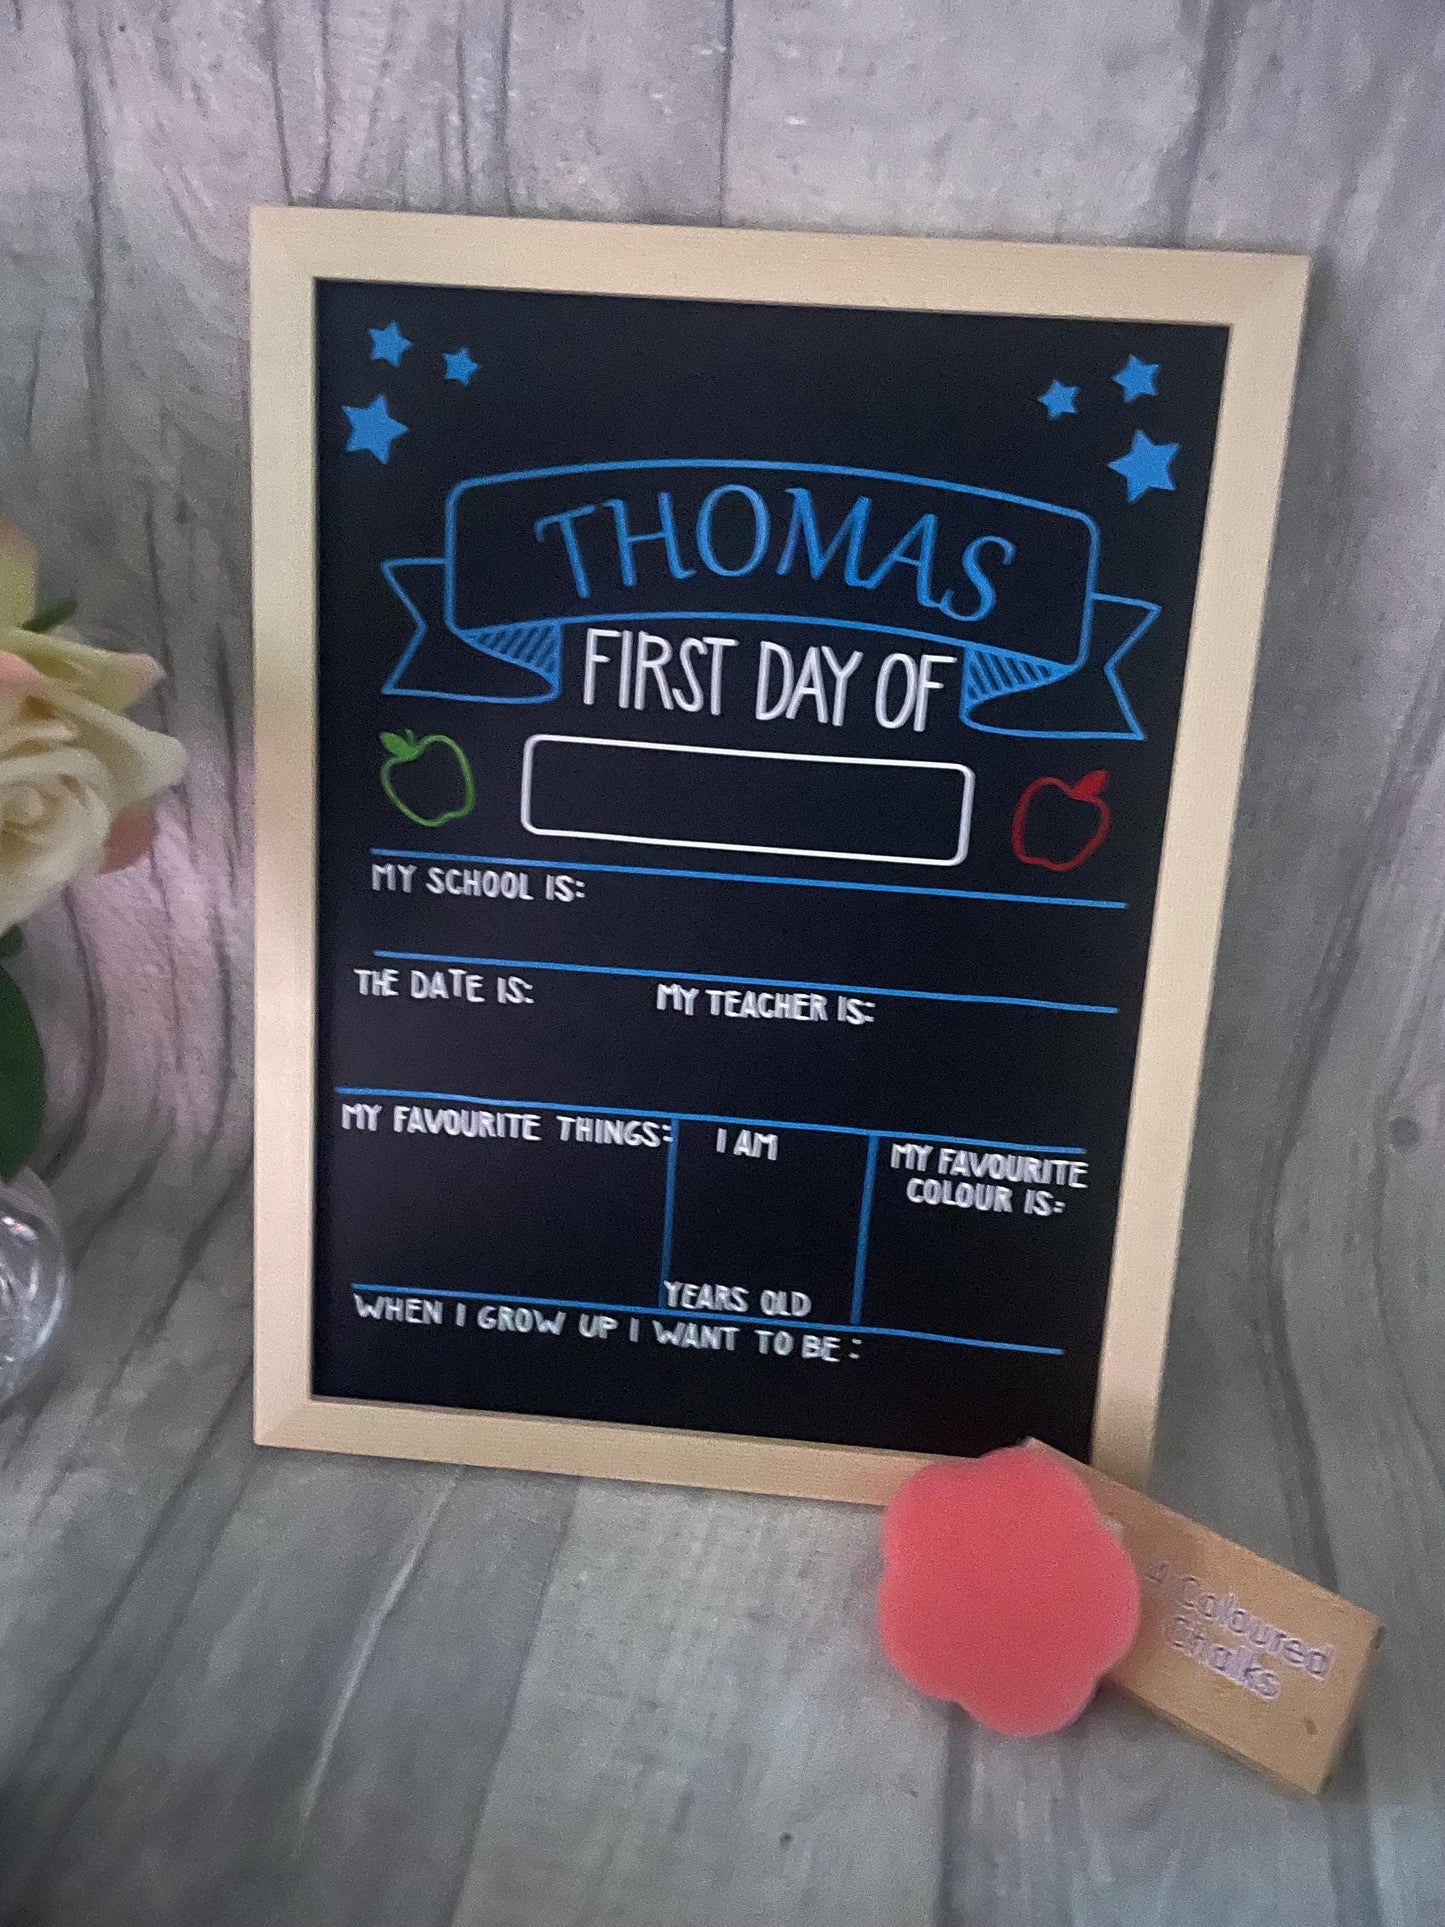 THOMAS
FIRST DAY OF
MY SCHOOL IS:
THE DATE IS:
MY TEACHER IS:
MY FAVOURITE THINGS:
I AM
YEARS OLD
MY FAVOURITE
COLOUR IS:
WHEN I GROW UP I WANT TO BE :
4 Coloured
Chalks